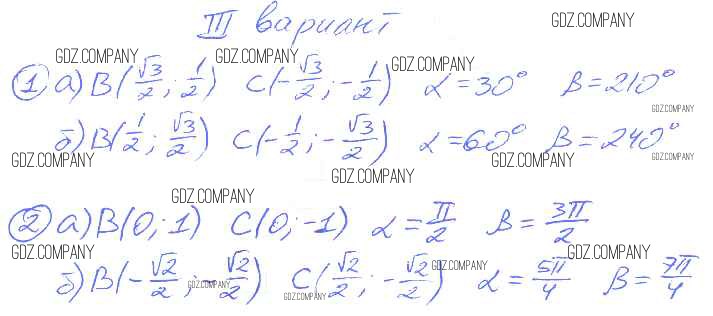 III вариант GDZ.COMPANY
GDZ.COMPANY GDZ.COMPANY GDZ.COMPANY
① а) B(√3/2; 1/2) C(-√3/2; -1/2) α = 30° β = 210°
GDZ.COMPANY
б) B(1/2; √3/2) C(-1/2; -√3/2) α = 60° β = 240°
GDZ.COMPANY GDZ.COMPANY GDZ.COMPANY
GDZ.COMPANY
GDZ.COMPANY
② а) B(0; 1) C(0; -1) α = π/2 β = 3π/2
GDZ.COMPANY GDZ.COMPANY GDZ.COMPANY
б) B(-√2/2; -√2/2) C(√2/2; -√2/2) α = 5π/4 β = 7π/4
GDZ.COMPANY GDZ.COMPANY